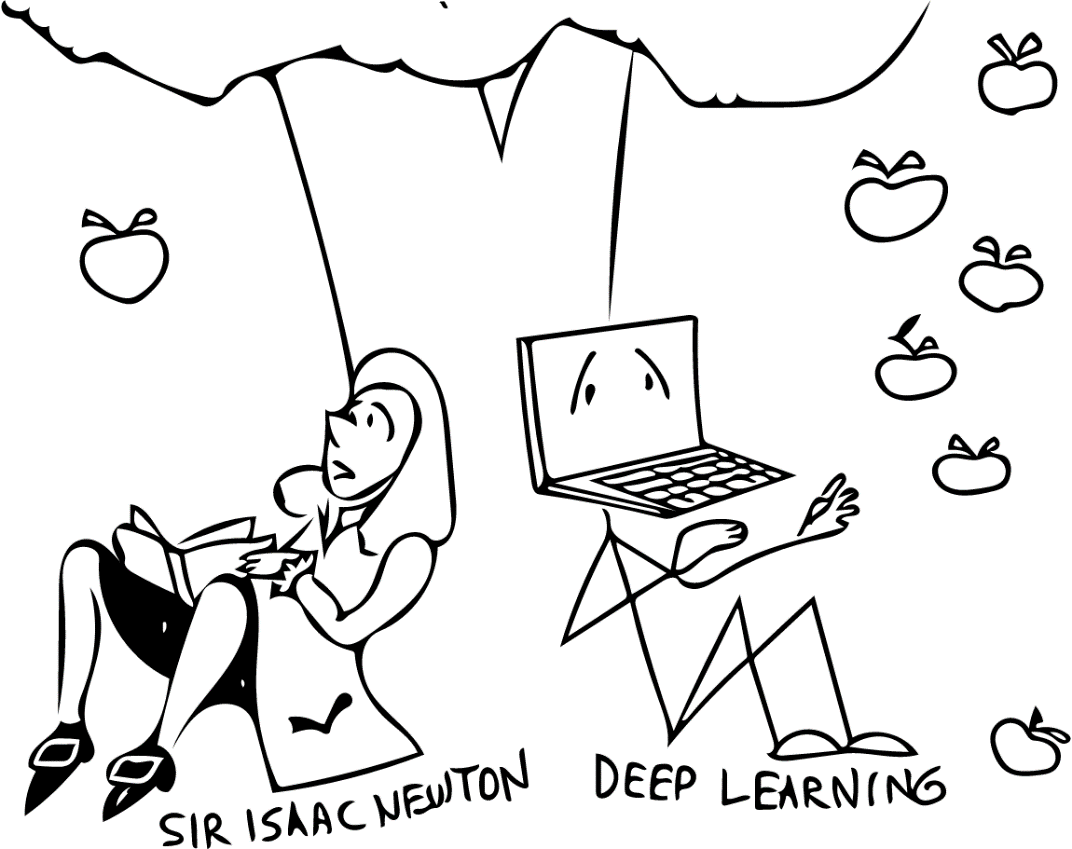 SIR ISAAC NEWTON
DEEP LEARNING